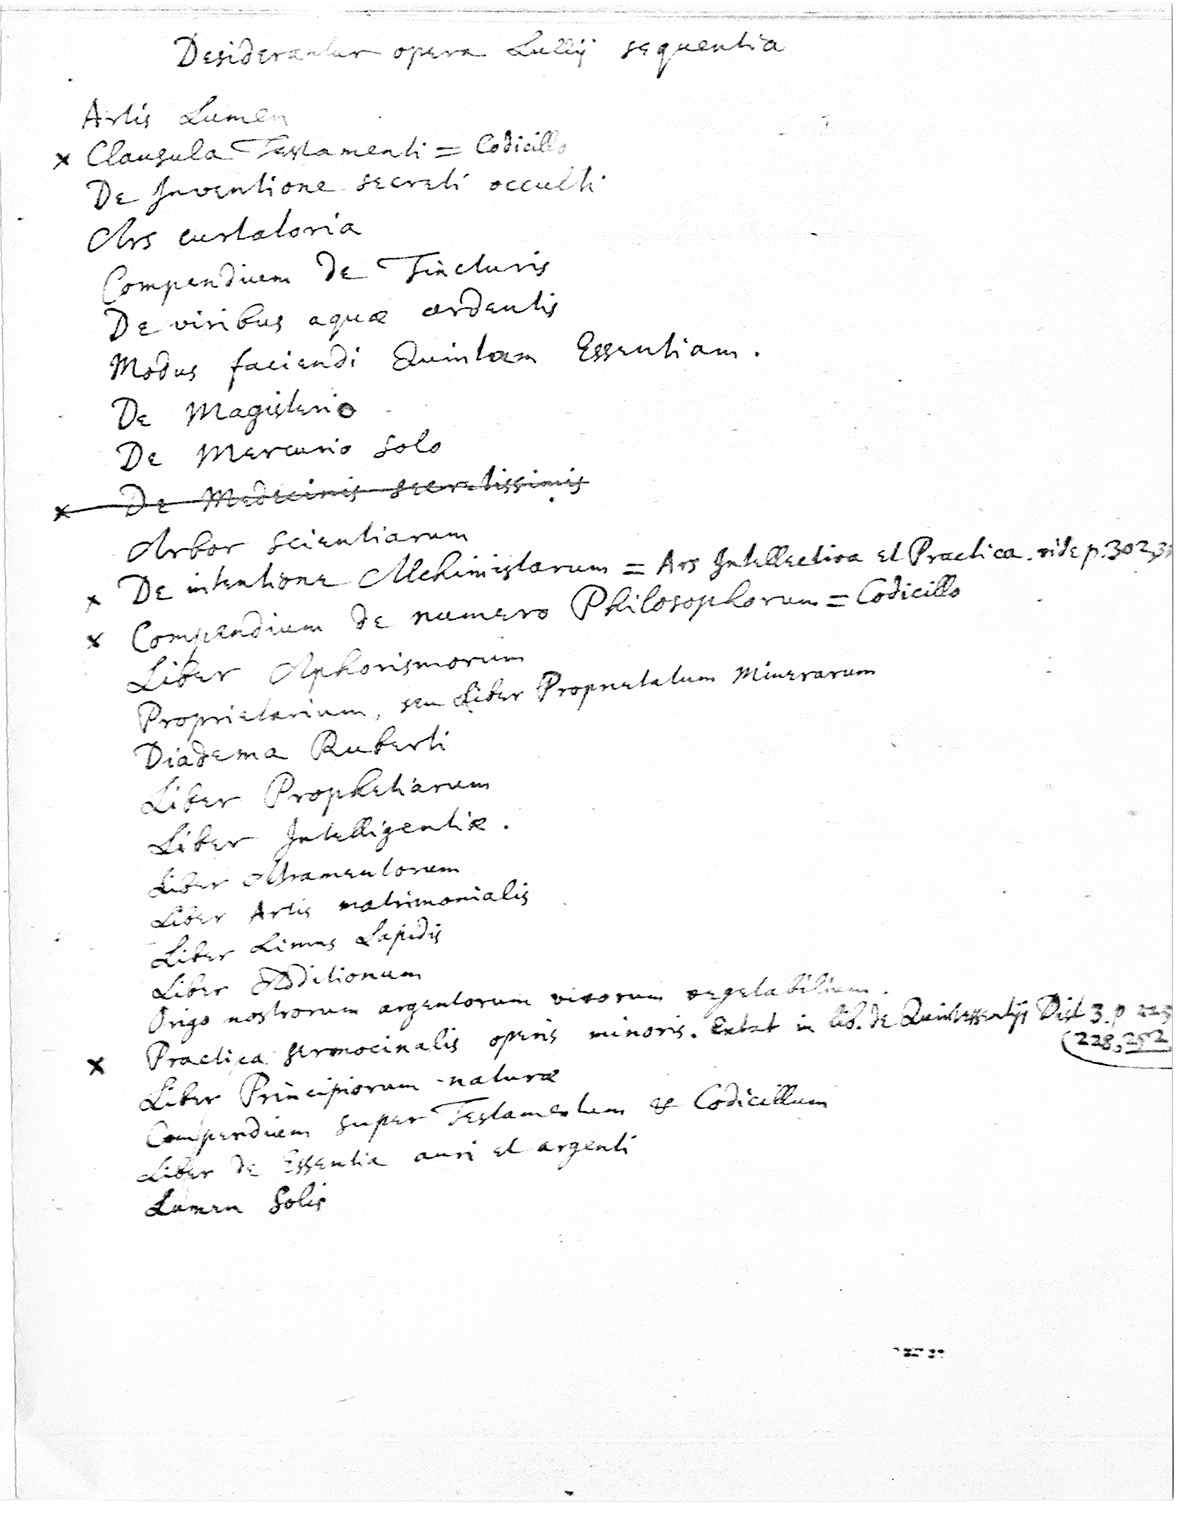 Desiderantur opera Lullij sequentia
Artis Lumen
× Clausula Testamenti = Codicillo
De Inventione secreti occulti
Ars curtatoria
Compendium de Tincturis
De viribus aquæ ardentis
Modus faciendi Quintam Essentiam.
De Magisterio
De Mercurio solo
× De Medicinis secretissimis
Arbor scientiarum
× De intentione Alchimistarum = Ars Intellectiva et Practica. vide p. 302,
× Compendium de numero Philosophorum = Codicillo
Liber Aphorismorum
Proprietarium, seu Liber Proprietatum Minerarum
Diadema Ruberti
Liber Prophetiarum
Liber Intelligentiæ.
Liber Atramentorum
Liber Artis matrimonialis
Liber Limus Lapidis
Liber Additionum
Origo nostrorum argentorum vivorum vegetabilium.
× Practica sermocinalis operis minoris. Extat in lib. de Quintessentijs Dist 3. p 225
(228, 252
Liber Principiorum naturæ
Compendium super Testamentum & Codicillum
Liber de Essentia auri et argenti
Lumen Solis